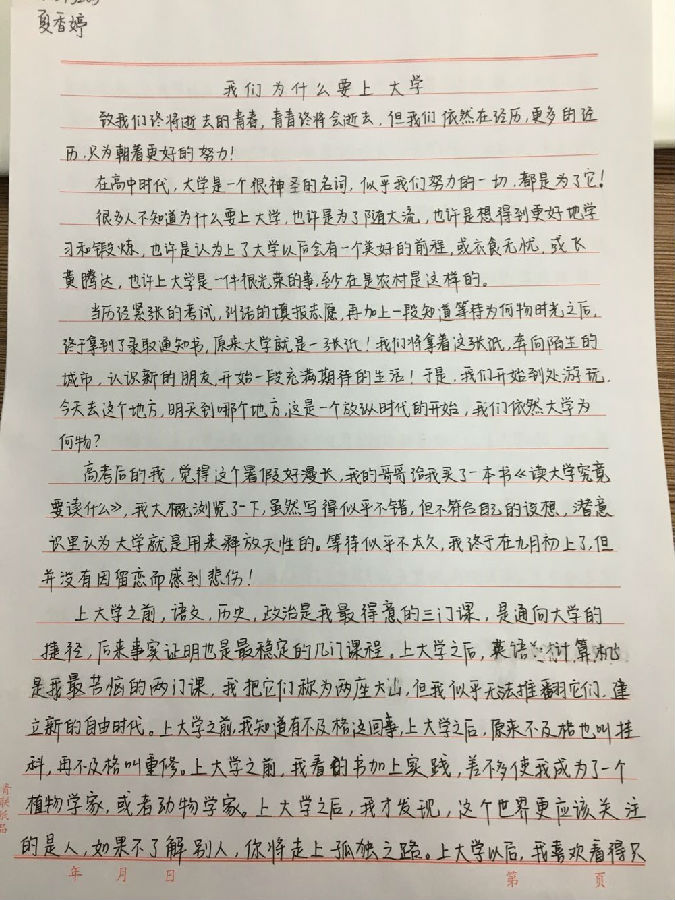 夏香婷
我们为什么要上大学
致我们终将逝去的青春，青春终将会逝去，但我们依然在经历，更多的经
历，只为朝着更好的努力！
在高中时代，大学是一个很神圣的名词，似乎我们努力的一切，都是为了它！
很多人不知道为什么要上大学，也许是为了随大流，也许是想得到更好地学
习和锻炼，也许是认为上了大学以后会有一个美好的前程，或衣食无忧，或飞
黄腾达，也许上大学是一件很光荣的事，至少在是农村是这样的。
当历经紧张的考试，纠结的填报志愿，再加上一段知道等待为何物时光之后，
终于拿到了录取通知书，原来大学就是一张纸！我们将拿着这张纸，奔向陌生的
城市，认识新的朋友，开始一段充满期待的生活！于是，我们开始到处游玩，
今天去这个地方，明天到哪个地方，这是一个放纵时代的开始，我们依然大学为
何物？
高考后的我，觉得这个暑假好漫长，我的哥哥给我买了一本书《读大学究竟
要读什么》，我大概浏览了一下，虽然写得似乎不错，但不符合自己的设想，潜意
识里认为大学就是用来释放天性的。等待似乎不太久，我终于在九月初上了，但
并没有因留恋而感到悲伤！
上大学之前，语文，历史，政治是我最得意的三门课，是通向大学的
捷径，后来事实证明也是最稳定的几门课程。上大学之后，英语 计算机
是我最苦恼的两门课，我把它们称为两座大山，但我似乎无法推翻它们，建
立新的自由时代。上大学之前，我知道有不及格这回事，上大学之后，原来不及格也叫挂
科，再不及格叫重修。上大学之前，我看的书加上实践，差不多使我成为了一个
植物学家，或者动物学家。上大学之后，我才发现，这个世界更应该关注
的是人，如果不了解别人，你将走上孤独之路。上大学以后，我喜欢看得只
年 月 日 第 页